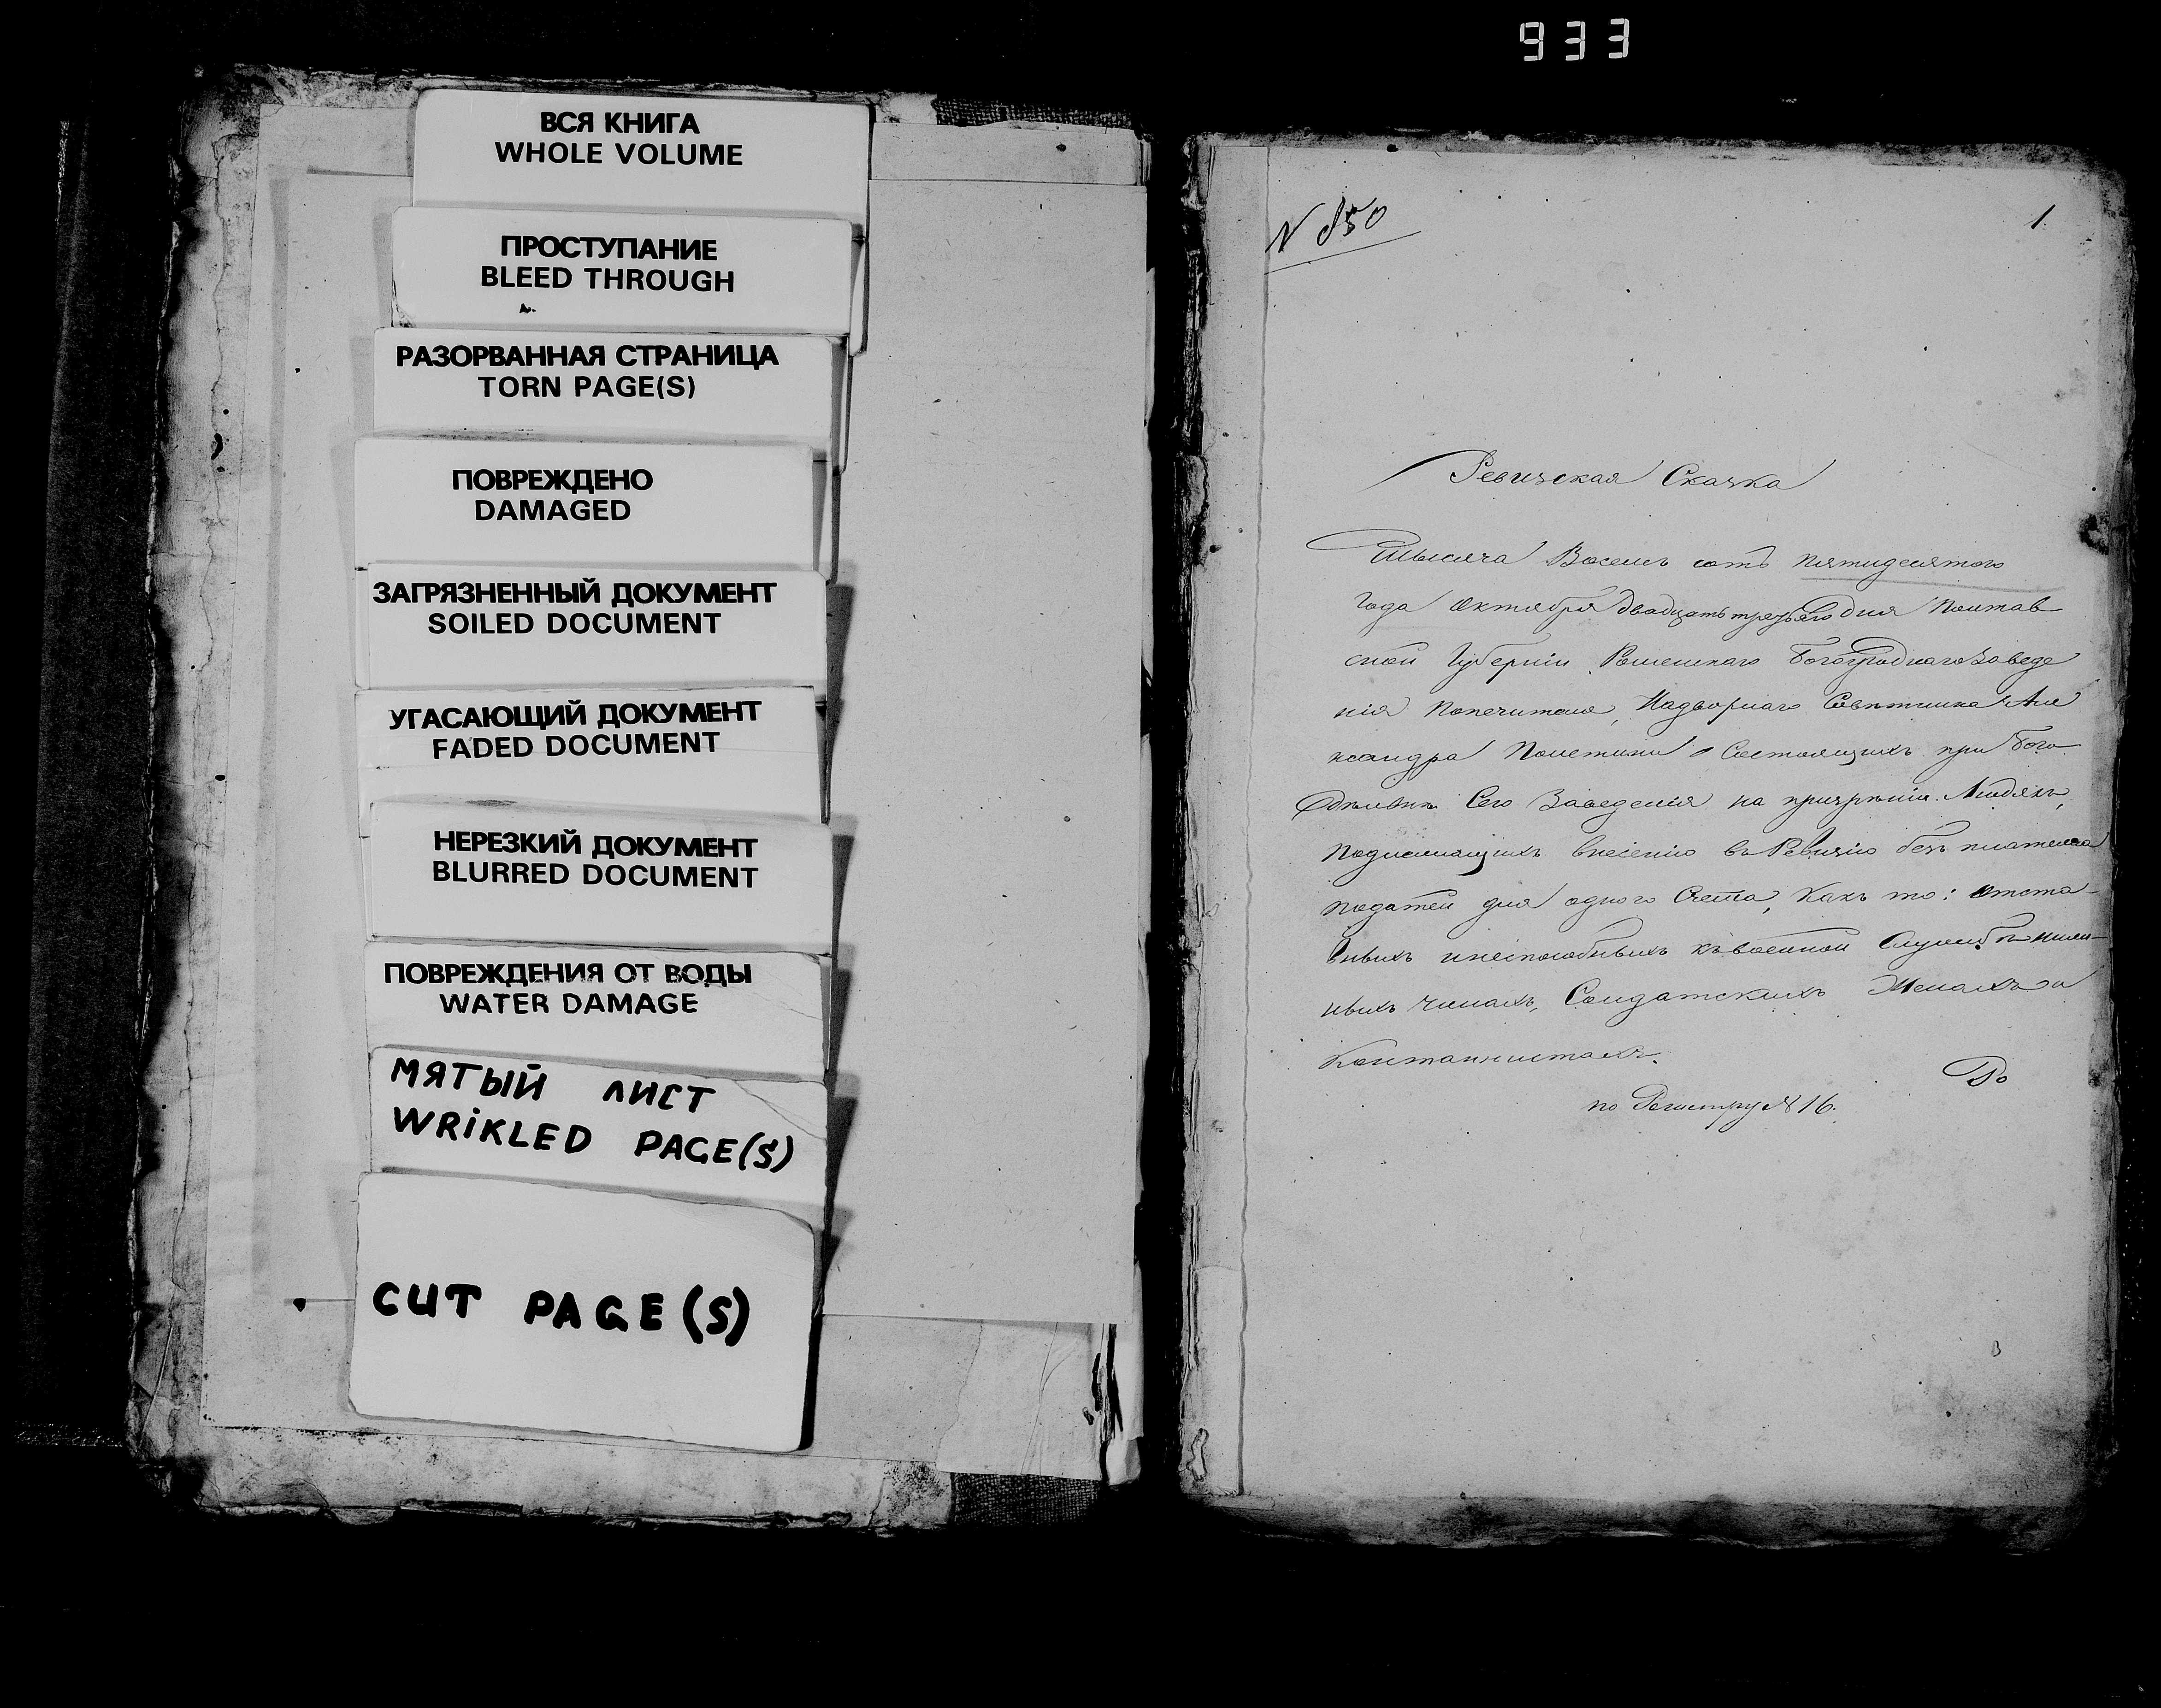 933
ВСЯ КНИГА
WHOLE VOLUME
ПРОСТУПАНИЕ
BLEED THROUGH
РАЗОРВАННАЯ СТРАНИЦА
TORN PAGE(S)
ПОВРЕЖДЕНО
DAMAGED
ЗАГРЯЗНЕННЫЙ ДОКУМЕНТ
SOILED DOCUMENT
УГАСАЮЩИЙ ДОКУМЕНТ
FADED DOCUMENT
НЕРЕЗКИЙ ДОКУМЕНТ
BLURRED DOCUMENT
ПОВРЕЖДЕНИЯ ОТ ВОДЫ
WATER DAMAGE
МЯТЫЙ ЛИСТ
WRiKLED PAGE(S)
CUT PAGE(S)
N 850
1.
Ревизская Сказка
Тысяча Восемь сотъ пятидесятого
года Октября двадцать третьего дня Полтав
ской Губерніи Роменскаго Богоугоднаго Заведе
нія Попечителя, Надворнаго Советника Але
ксандра Полетики о Состоящихъ при Бого
дѣльнѣ Сего Заведенія на призрѣніи Людяхъ,
подлежащихъ внесенію въ Ревизію безъ платежа
податей для одного Счета, Какъ то: отста-
вныхъ и неспособныхъ къ военной Службѣ ниж-
ныхъ чинахъ, Солдатскихъ Женахъ и
Кантонистахъ.
Во
по Регистру № 16.